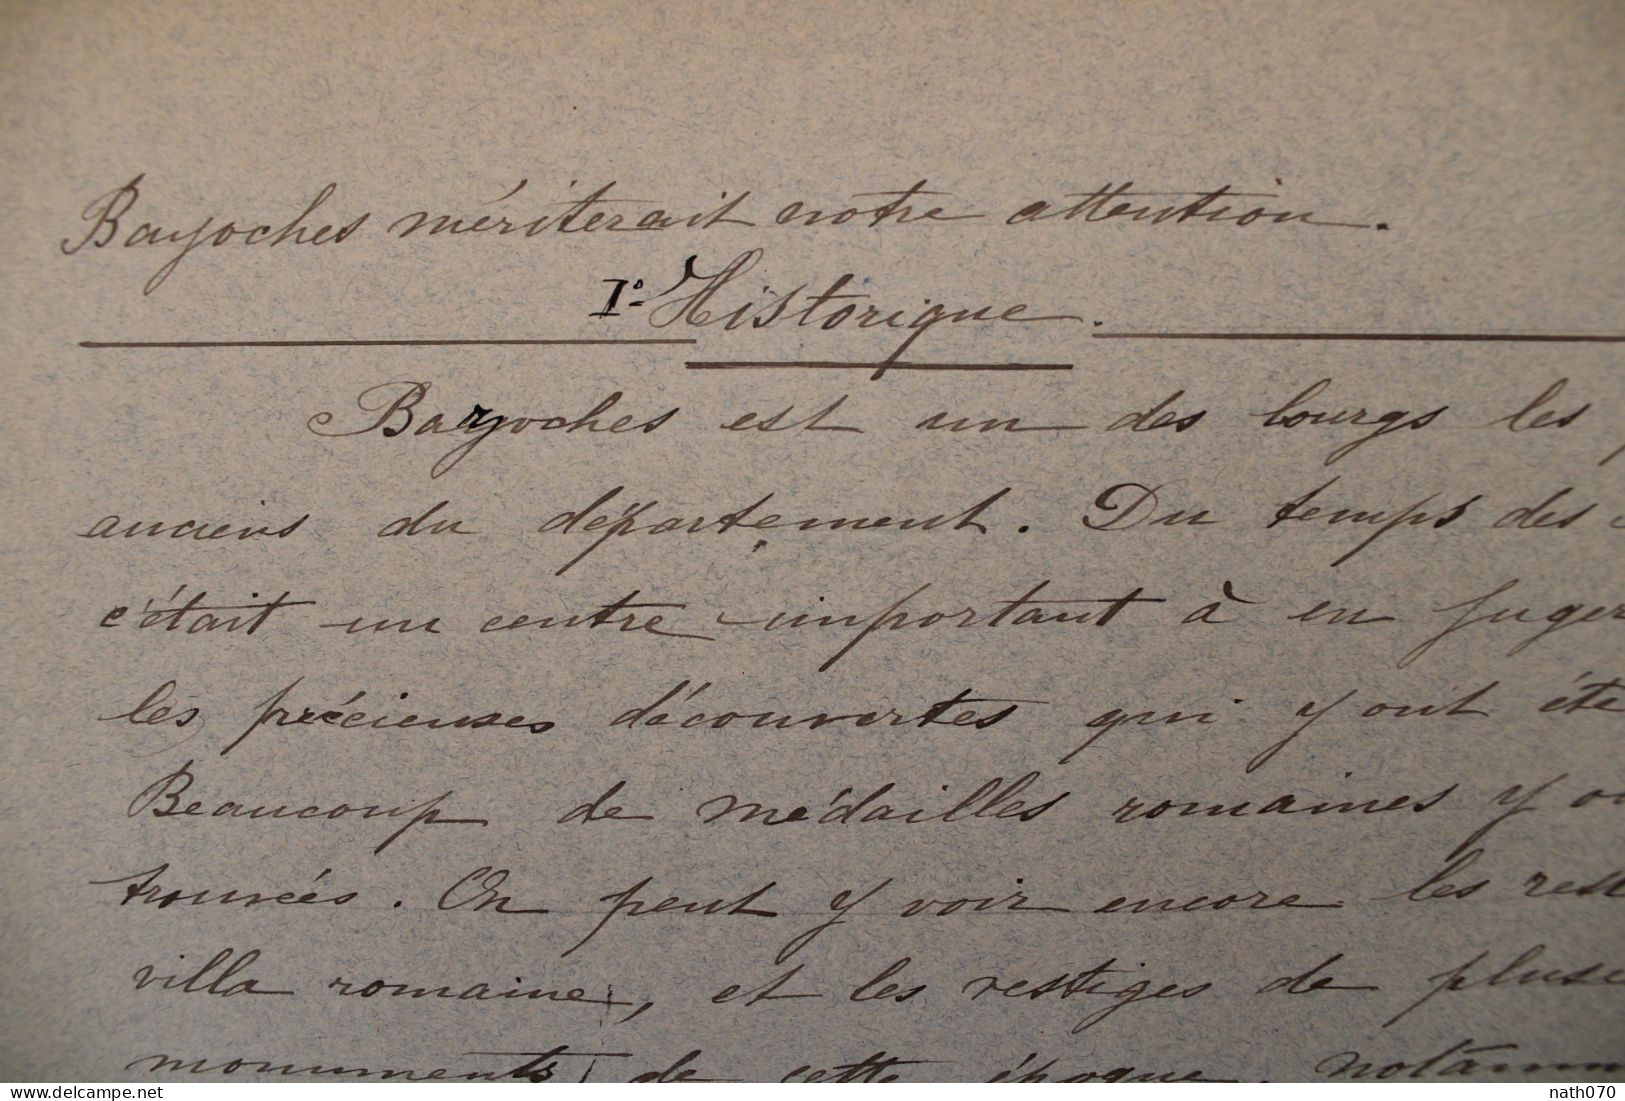 Bazoches mériterait notre attention.
I° Historique.
Bazoches est un des bourgs les
anciens du département. Du temps des
c'était un centre important à en juger
les précieuses découvertes qui y ont été
Beaucoup de médailles romaines y
trouvées. On peut y voir encore les
villa romaine, et les vestiges de
monuments de cette époque, notamm
delcampe.net
nath070